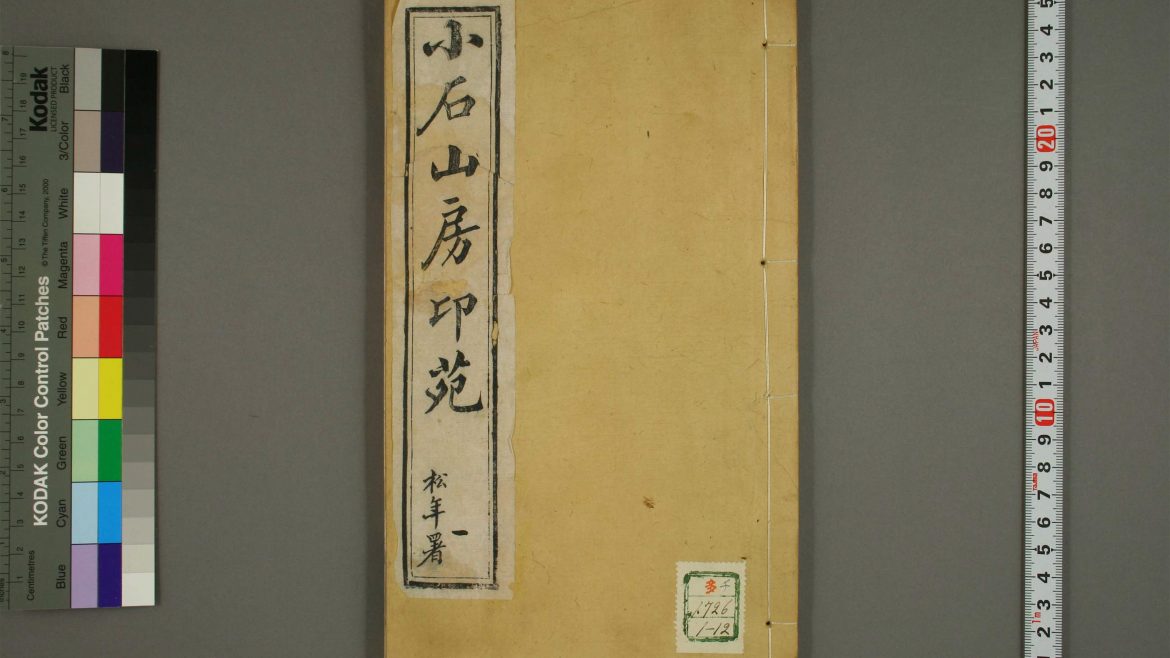 小石山房印苑
松年署
一
多 チ
1726
1-12
Kodak
LICENSED PRODUCT
KODAK Color Control Patches
© The Tiffen Company, 2000
Black
3/Color
White
Magenta
Red
Yellow
Green
Cyan
Blue
Centimetres
Inches
8
7
6
5
4
3
2
1
19
18
17
16
15
14
13
12
11
10
9
8
7
6
5
4
3
2
1
5
4
3
2
1
20
9
8
7
6
5
4
3
2
1
10
9
8
7
6
5
4
3
2
1
1m